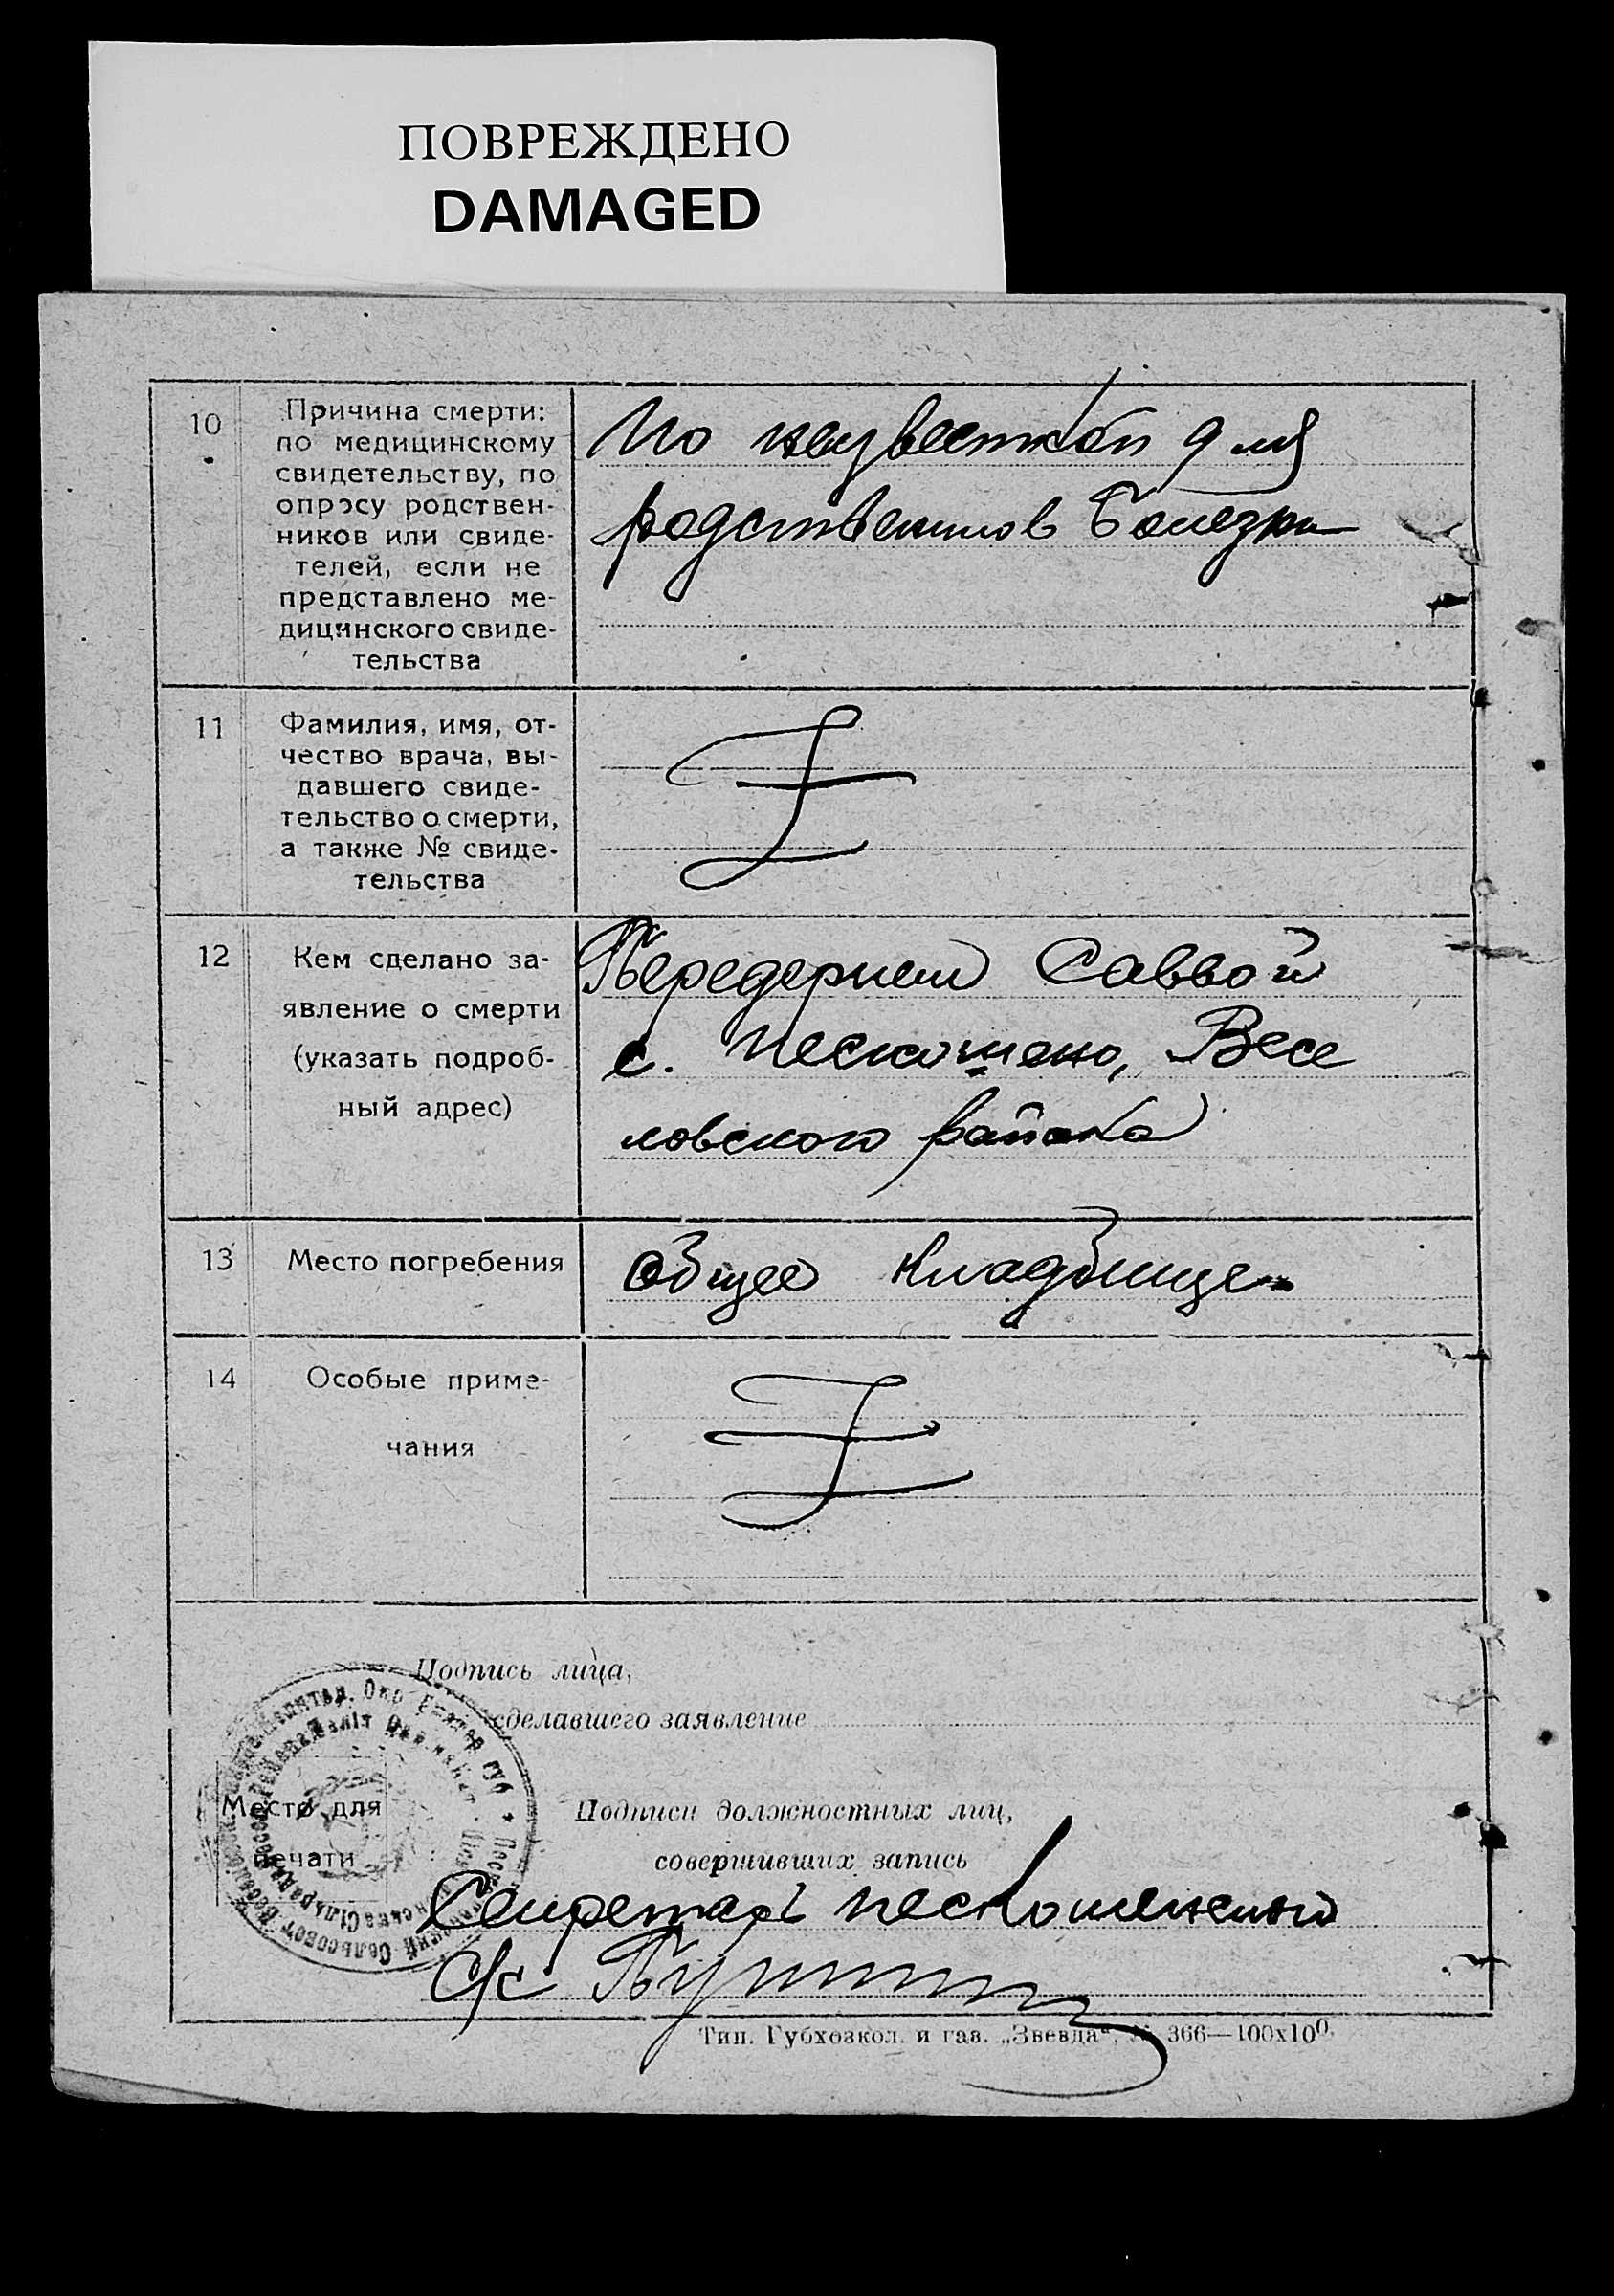 ПОВРЕЖДЕНО
DAMAGED
10
Причина смерти:
по медицинскому
свидетельству, по
опросу родствен-
ников или свиде-
телей, если не
представлено ме-
дицинского свиде-
тельства
По неизвестной для
родственников болезни
11
Фамилия, имя, от-
чество врача, вы-
давшего свиде-
тельство о смерти,
а также № свиде-
тельства
12
Кем сделано за-
явление о смерти
(указать подроб-
ный адрес)
Передерием Саввой
с. Нескошено, Весе
ловского района
13
Место погребения
Общее кладбище
14
Особые приме-
чания
Подпись лица,
сделавшего заявление
Место для
печати
Подписи должностных лиц,
совершивших запись
Секретарь
с/с
Тип. Губхозкол. и газ. „Звезда“, № 366—100х100